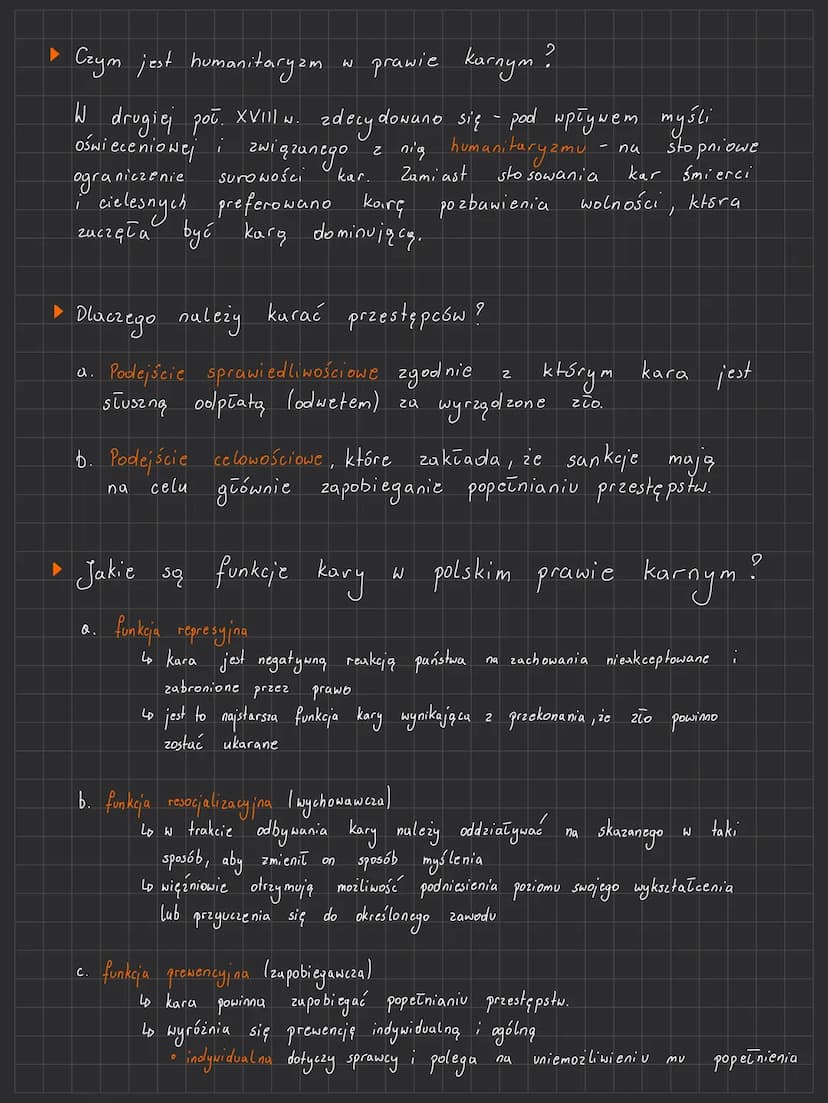 Czym jest humanitaryzm w prawie karnym?
W drugiej poł. XVIII w. zdecydowano się - pod wpływem myśli
oświeceniowej i związanego z nią humanitaryzmu - na stopniowe
ograniczenie surowości kar. Zamiast stosowania kar śmierci
i cielesnych preferowano karę pozbawienia wolności, która
zaczęła być karą dominującą.
Dlaczego należy karać przestępców?
a. Podejście sprawiedliwościowe zgodnie z którym kara jest
słuszną odpłatą (odwetem) za wyrządzone zło.
b. Podejście celowościowe, które zakłada, że sankcje mają
na celu głównie zapobieganie popełnianiu przestępstw.
Jakie są funkcje kary w polskim prawie karnym?
a. funkcja represyjna
↳ kara jest negatywną reakcją państwa na zachowania nieakceptowane i
zabronione przez prawo
↳ jest to najstarsza funkcja kary wynikająca z przekonania, że zło powinno
zostać ukarane
b. funkcja resocjalizacyjna (wychowawcza)
↳ w trakcie odbywania kary należy oddziaływać na skazanego w taki
sposób, aby zmienił on sposób myślenia
↳ więźniowie otrzymują możliwość podniesienia poziomu swojego wykształcenia
lub przyuczenia się do określonego zawodu
c. funkcja prewencyjna (zapobiegawcza)
↳ kara powinna zapobiegać popełnianiu przestępstw.
↳ wyróżnia się prewencję indywidualną i ogólną
• indywidualna dotyczy sprawcy i polega na uniemożliwieniu mu popełnienia